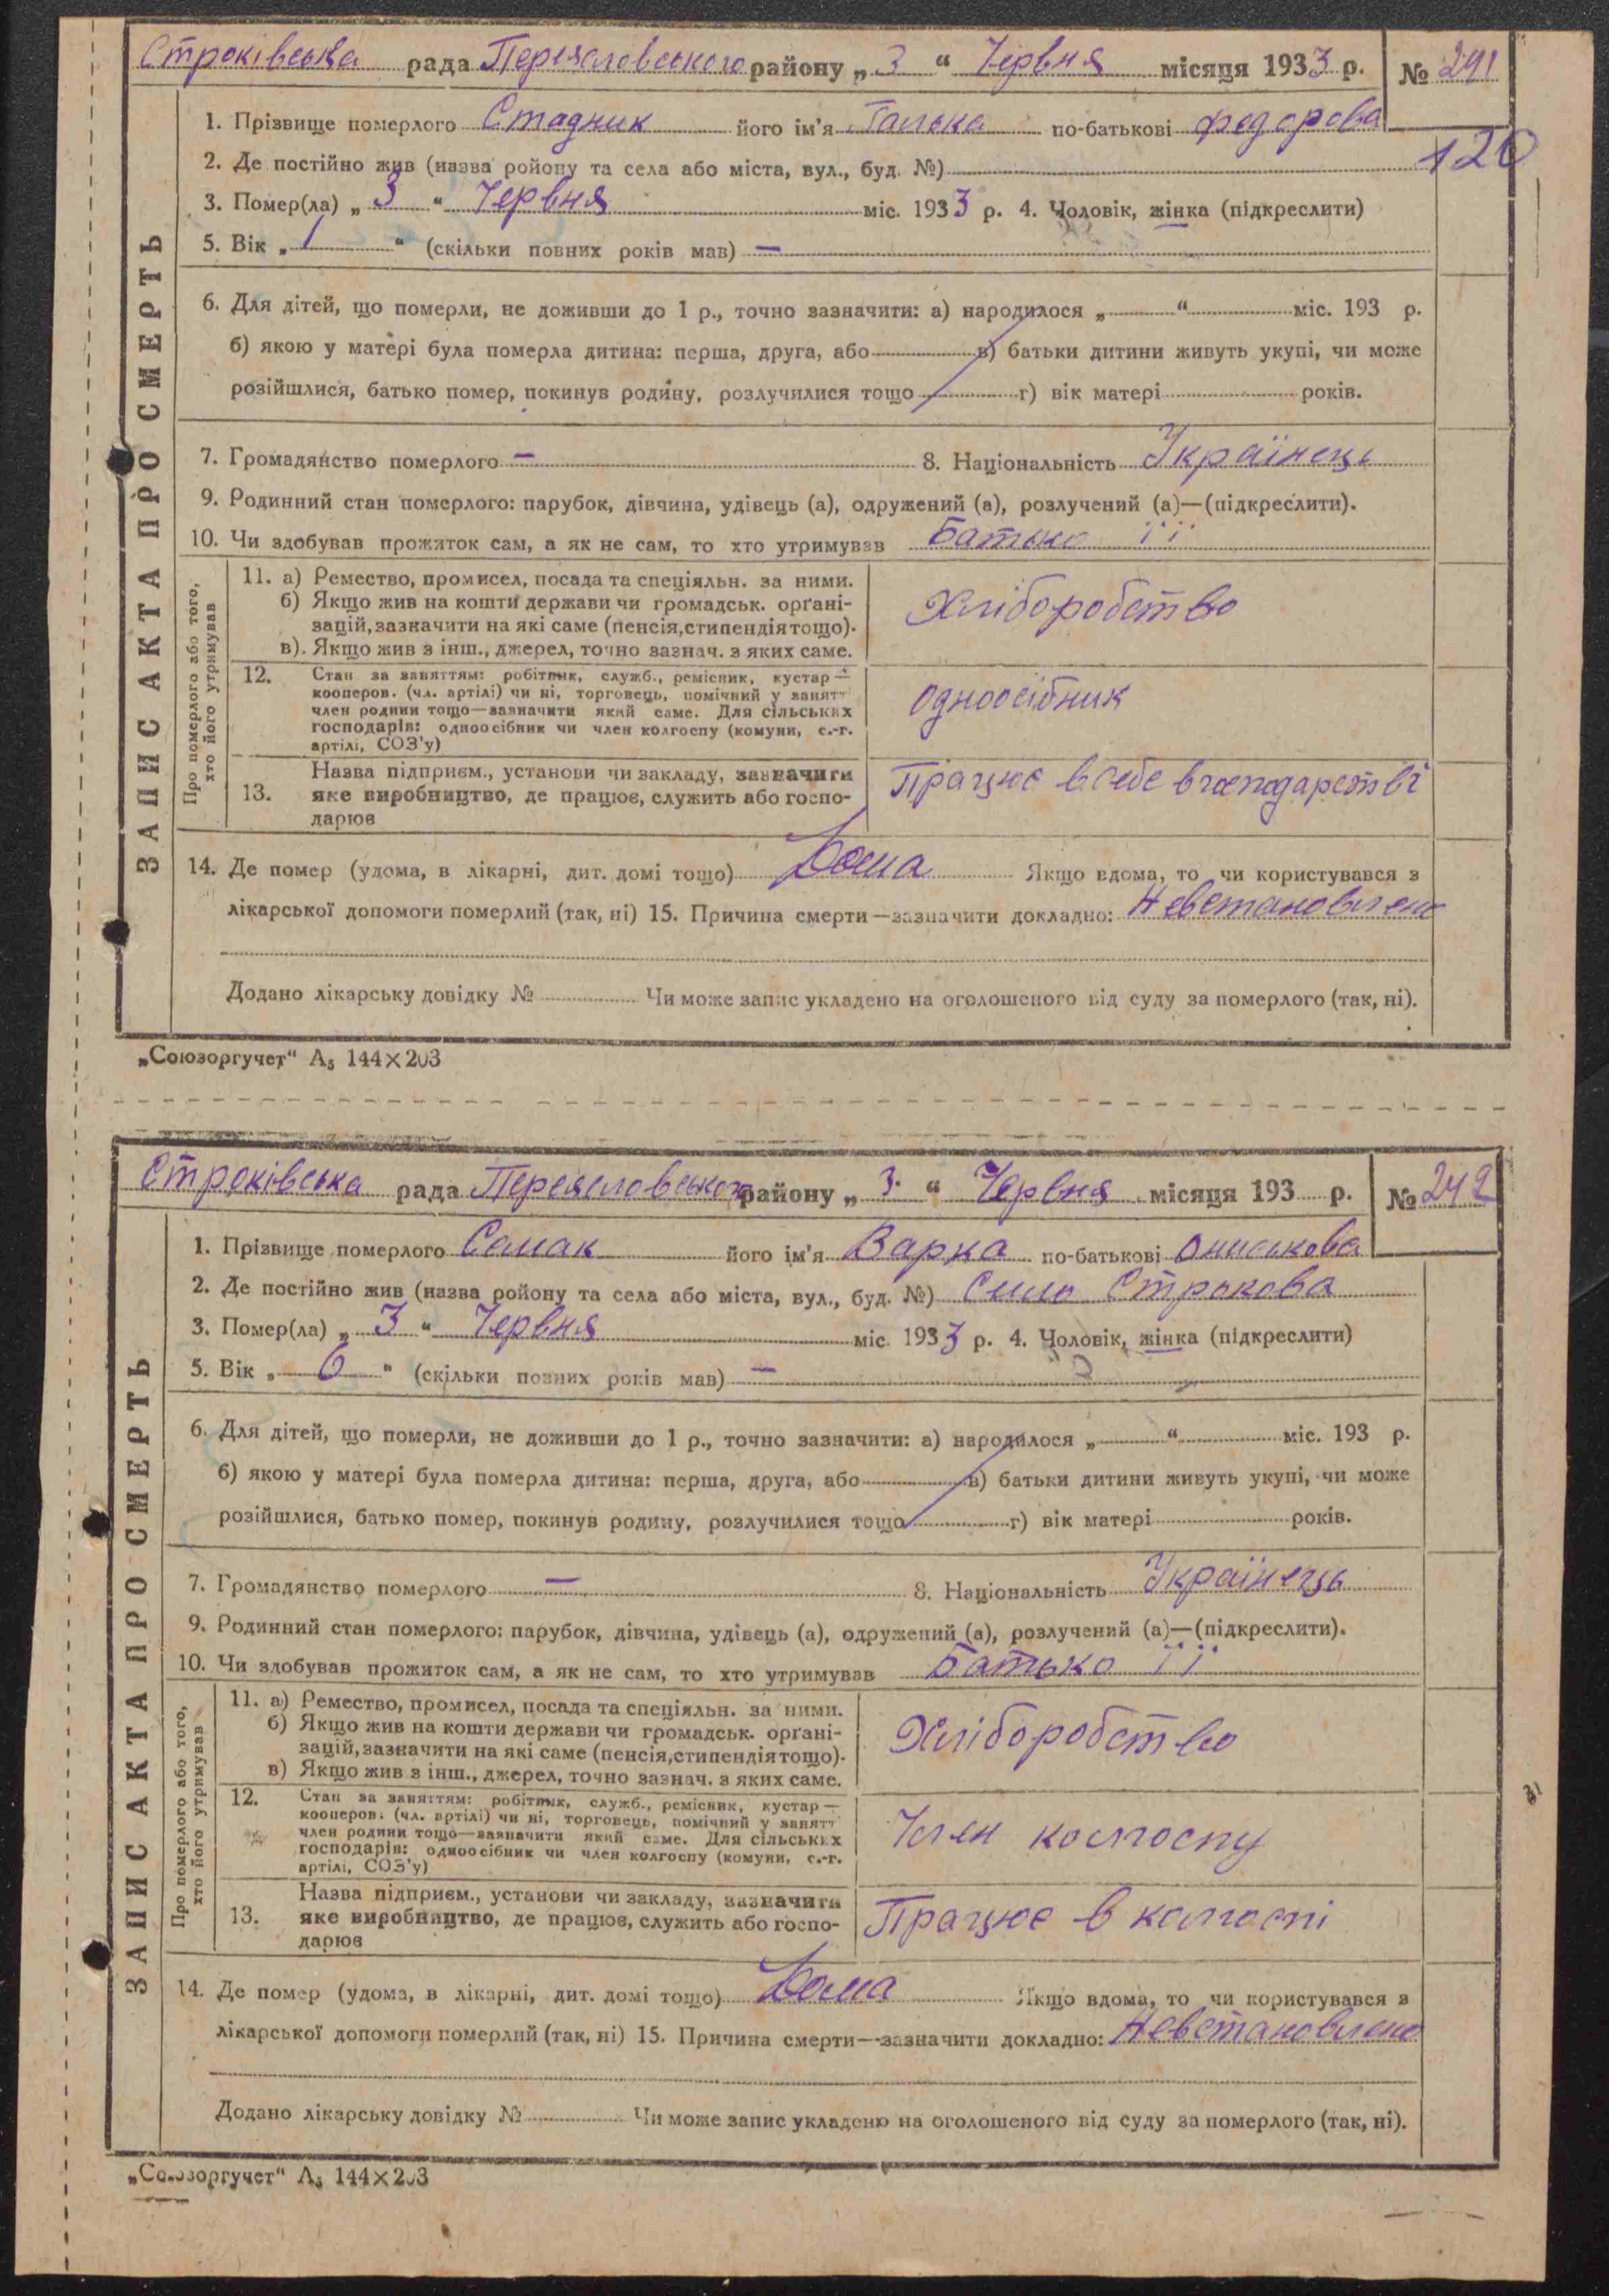 Строківська рада Переяславського району „ 3 “ Червня місяця 1933 р. № 241
1. Прізвище померлого Стадник його ім'я Галька по-батькові Федорова
120
2. Де постійно жив (назва ройону та села або міста, вул., буд. №)
3. Помер(ла) „ 3 “ Червня міс. 1933 р. 4. Чоловік, жінка (підкреслити)
5. Вік „ 1 “ (скільки повних років мав) —
6. Для дітей, що померли, не доживши до 1 р., точно зазначити: а) народилося „ “ міс. 193 р.
б) якою у матері була померла дитина: перша, друга, або в) батьки дитини живуть укупі, чи може
розійшлися, батько помер, покинув родину, розлучилися тощо г) вік матері років.
7. Громадянство померлого — 8. Національність Українець
9. Родинний стан померлого: парубок, дівчина, удівець (а), одружений (а), розлучений (а)—(підкреслити).
10. Чи здобував прожиток сам, а як не сам, то хто утримував Батько її
Про померлого або того, хто його утримував
11. а) Ремество, промисел, посада та спеціяльн. за ними.
б) Якщо жив на кошти держави чи громадськ. орґані-
зацій, зазначити на які саме (пенсія, стипендія тощо).
в). Якщо жив з інш., джерел, точно зазнач. з яких саме.
Хліборобство
12. Стан за заняттям: робітник, служб., ремісник, кустар —
кооперов. (чл. артілі) чи ні, торговець, помічний у занятт
член родини тощо—зазначити який саме. Для сільських
господарів: одноосібник чи член колгоспу (комуни, с.-г.
артілі, СОЗ'у)
одноосібник
13. Назва підприєм., установи чи закладу, зазначити
яке виробництво, де працює, служить або госпо-
дарює
Працює в себе в господарстві
14. Де помер (удома, в лікарні, дит. домі тощо) Дома Якщо вдома, то чи користувався з
лікарської допомоги померлий (так, ні) 15. Причина смерти—зазначити докладно: Невстановлено
Додано лікарську довідку № Чи може запис укладено на оголошеного від суду за померлого (так, ні).
ЗАПИС АКТА ПРО СМЕРТЬ
„Союзоргучет“ А₅ 144×203
Строківська рада Переясловського району „ 3 “ Червня місяця 193 р. № 242
1. Прізвище померлого Самак його ім'я Варка по-батькові Ониськова
2. Де постійно жив (назва ройону та села або міста, вул., буд. №) Село Строкова
3. Помер(ла) „ 3 “ Червня міс. 1933 р. 4. Чоловік, жінка (підкреслити)
5. Вік „ 6 “ (скільки повних років мав) —
6. Для дітей, що померли, не доживши до 1 р., точно зазначити: а) народилося „ “ міс. 193 р.
б) якою у матері була померла дитина: перша, друга, або в) батьки дитини живуть укупі, чи може
розійшлися, батько помер, покинув родину, розлучилися тощо г) вік матері років.
7. Громадянство померлого — 8. Національність Українець
9. Родинний стан померлого: парубок, дівчина, удівець (а), одружений (а), розлучений (а)—(підкреслити).
10. Чи здобував прожиток сам, а як не сам, то хто утримував Батько її
Про померлого або того, хто його утримував
11. а) Ремество, промисел, посада та спеціяльн. за ними.
б) Якщо жив на кошти держави чи громадськ. орґані-
зацій, зазначити на які саме (пенсія, стипендія тощо).
в) Якщо жив з інш., джерел, точно зазнач. з яких саме.
Хліборобство
12. Стан за заняттям: робітник, служб., ремісник, кустар —
кооперов. (чл. артілі) чи ні, торговець, помічний у занятт
член родини тощо—зазначити який саме. Для сільських
господарів: одноосібник чи член колгоспу (комуни, с.-г.
артілі, СОЗ'у)
Член колгоспу
13. Назва підприєм., установи чи закладу, зазначити
яке виробництво, де працює, служить або госпо-
дарює
Працює в колгоспі
14. Де помер (удома, в лікарні, дит. домі тощо) Дома Якщо вдома, то чи користувався з
лікарської допомоги померлий (так, ні) 15. Причина смерти—зазначити докладно: Невстановлено
Додано лікарську довідку № Чи може запис укладено на оголошеного від суду за померлого (так, ні).
ЗАПИС АКТА ПРО СМЕРТЬ
„Союзоргучет“ А₅ 144×203